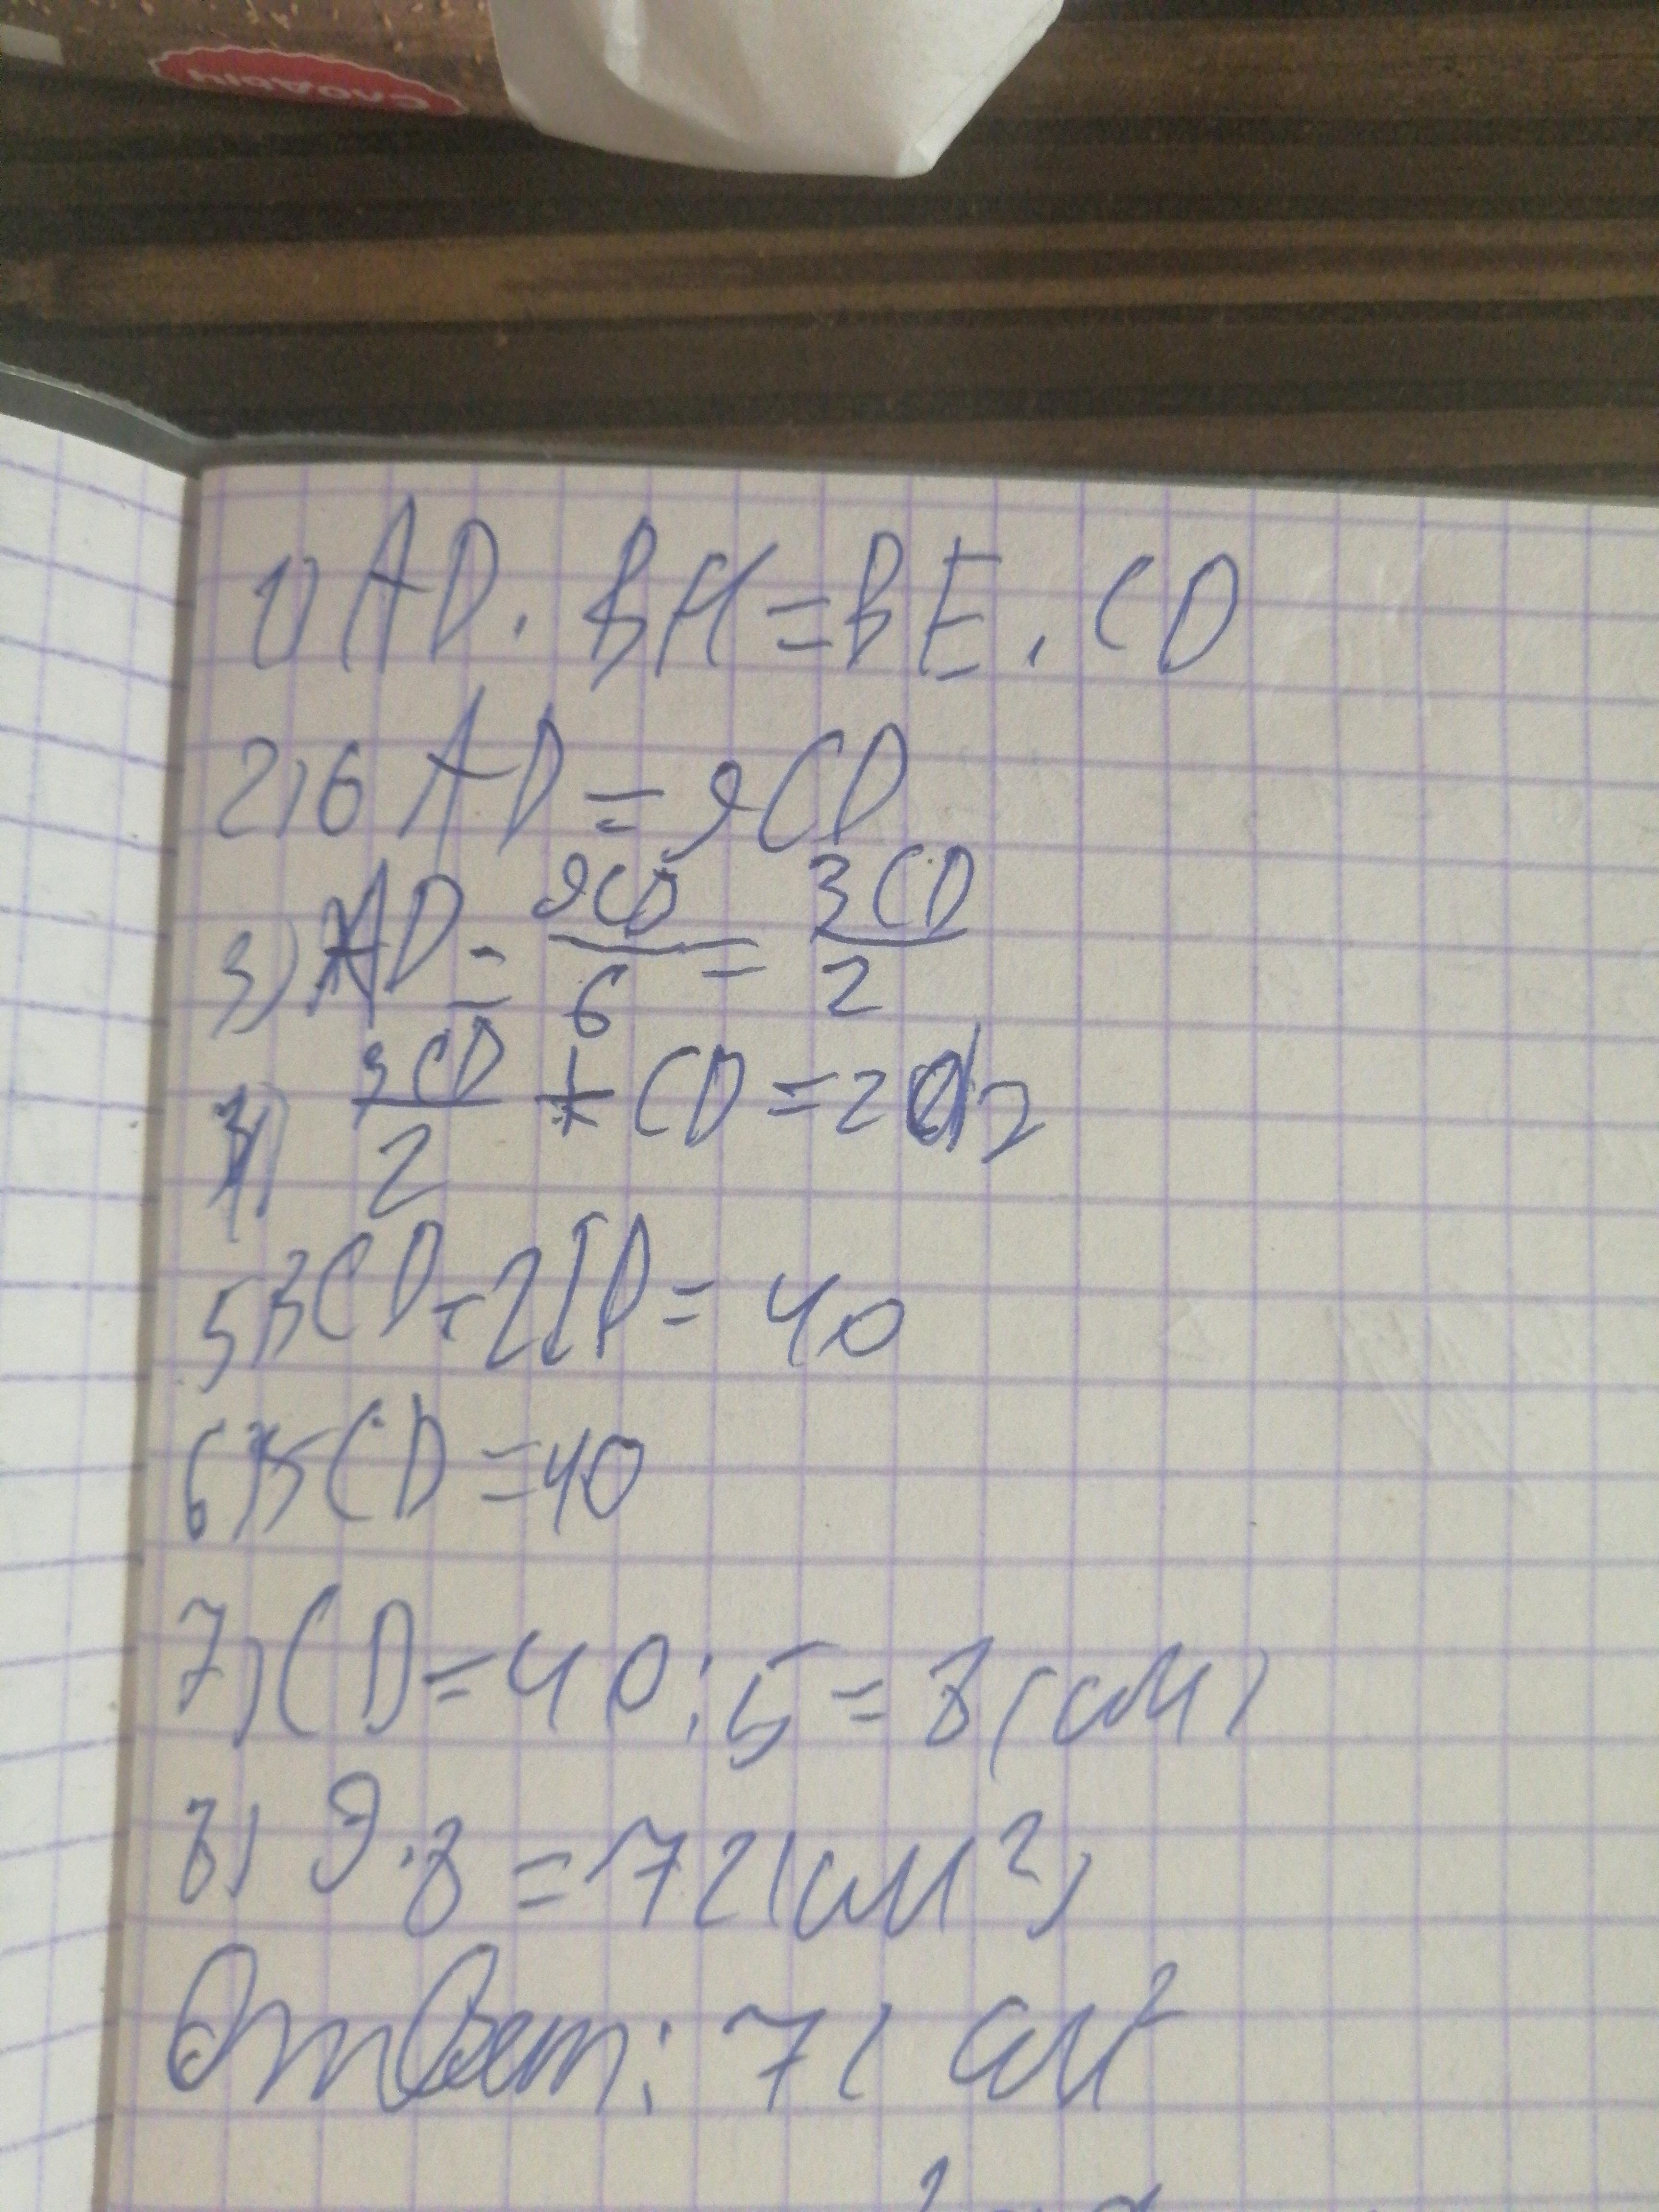 слодыч
1) AD · BH = BE · CD
2) 6 AD = 9CD
3) AD = 9CD/6 = 3CD/2
4) 3CD/2 + CD = 20 |·2
5) 3CD + 2CD = 40
6) 5CD = 40
7) CD = 40 : 5 = 8 (см)
8) 9 · 8 = 72 (см²)
Ответ: 72 см²